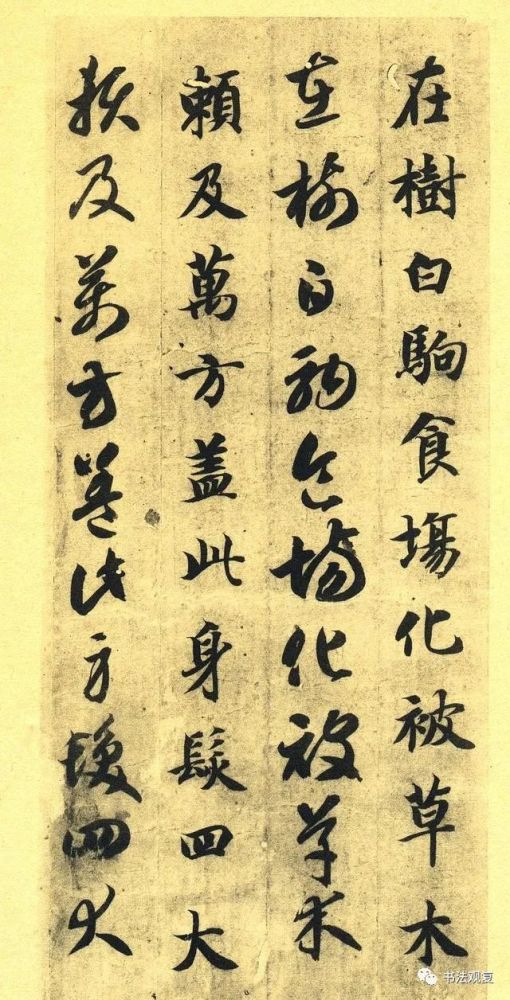 在樹白駒食場化被草木
在樹白駒食場化被草木
賴及萬方盖此身髮四大
賴及萬方盖此身髮四大
书法观复